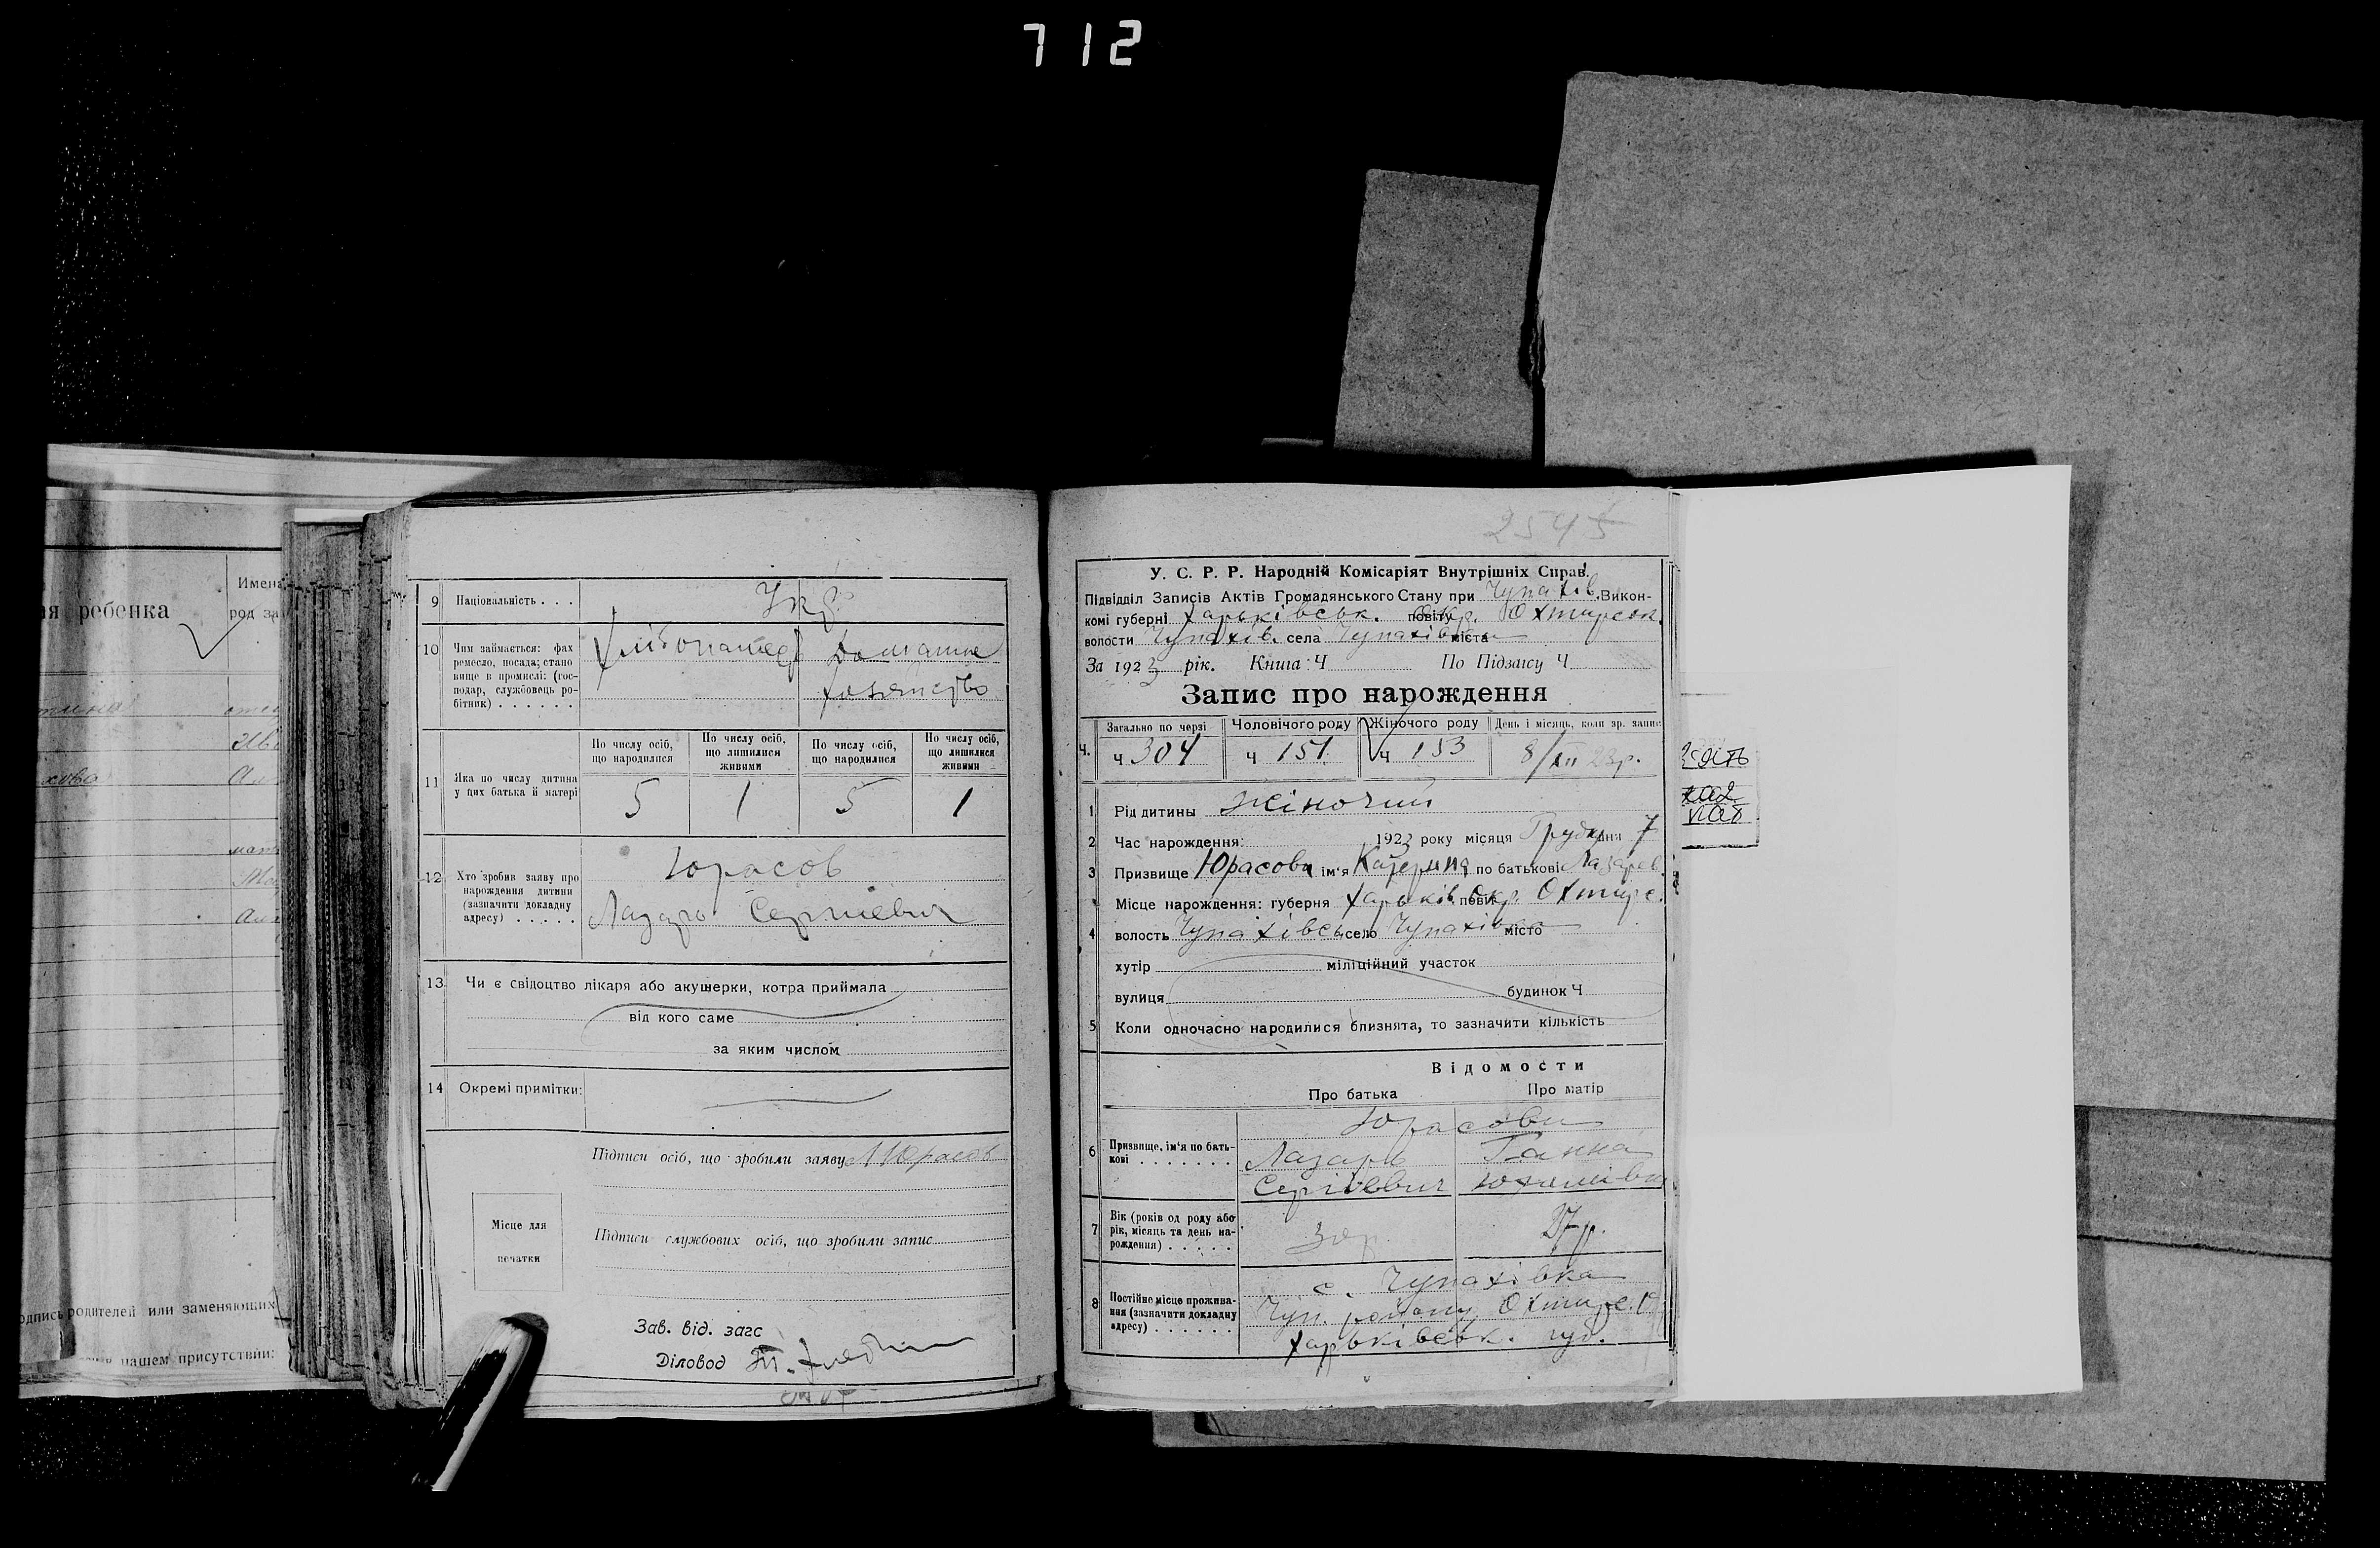 712
ребенка
Имена
род за
9 Національність . . . Укр.
10 Чим займається: фах
ремесло, посада; стано
вище в промислі: (гос-
подар, службовець ро-
бітник) . . . . . .
Домашнє
11 Яка по числу дитина
у цих батька й матері
По числу осіб,
що народилися
По числу осіб,
що лишилися
живими
По числу осіб,
що народилися
По числу осіб,
що лишилися
живими
5 1 5 1
12 Хто зробив заяву про
нарождення дитини
(зазначити докладну
адресу) . . . . .
Юрасов
Лазарь Сергиевич
13 Чи є свідоцтво лікаря або акушерки, котра приймала
від кого саме
за яким числом
14 Окремі примітки:
Підписи осіб, що зробили заяву Л Юрасов
Місце для
печатки
Підписи службових осіб, що зробили запис
Зав. від. загс
Діловод
одпись родителей или заменяющих
в нашем присутствии:
2545
У. С. Р. Р. Народній Комісаріят Внутрішніх Справ.
Підвідділ Записів Актів Громадянського Стану при Чупахів. Викон-
комі губерні Харьківськ. повіту Окр. Охтирськ.
волости Чупахів. села Чупахівка міста
За 1923 рік. Книга: Ч По Підзагсу Ч
Запис про нарождення
Ч. Загально по черзі Чоловічого роду Жіночого роду День і місяць, коли зр. запис
Ч 304 Ч 151 Ч 153 8/XII 23р.
1 Рід дитини Жіночий
2 Час нарождення: 1923 року місяця Грудня дня 7
3 Призвище Юрасова ім'я Катерина по батькові Лазарев.
Місце нарождення: губерня Харьків. повіт Окр. Охтирс.
4 волость Чупахівсь. село Чупахівка місто
хутір міліційний участок
вулиця будинок Ч
5 Коли одночасно народилися близнята, то зазначити кількість
Відомости
Про батька Про матір
6 Призвище, ім'я по бать-
кові . . . . . . .
Юрасови
Лазарь Ганна
Сергієвич
7 Вік (років од роду або
рік, місяць та день на-
рождення) . . . . .
30р. 27р.
8 Постійне місце прожива-
ння (зазначити докладну
адресу) . . . . . . .
с. Чупахівка
Чуп. району Охтирс. О
Харьківськ. губ.